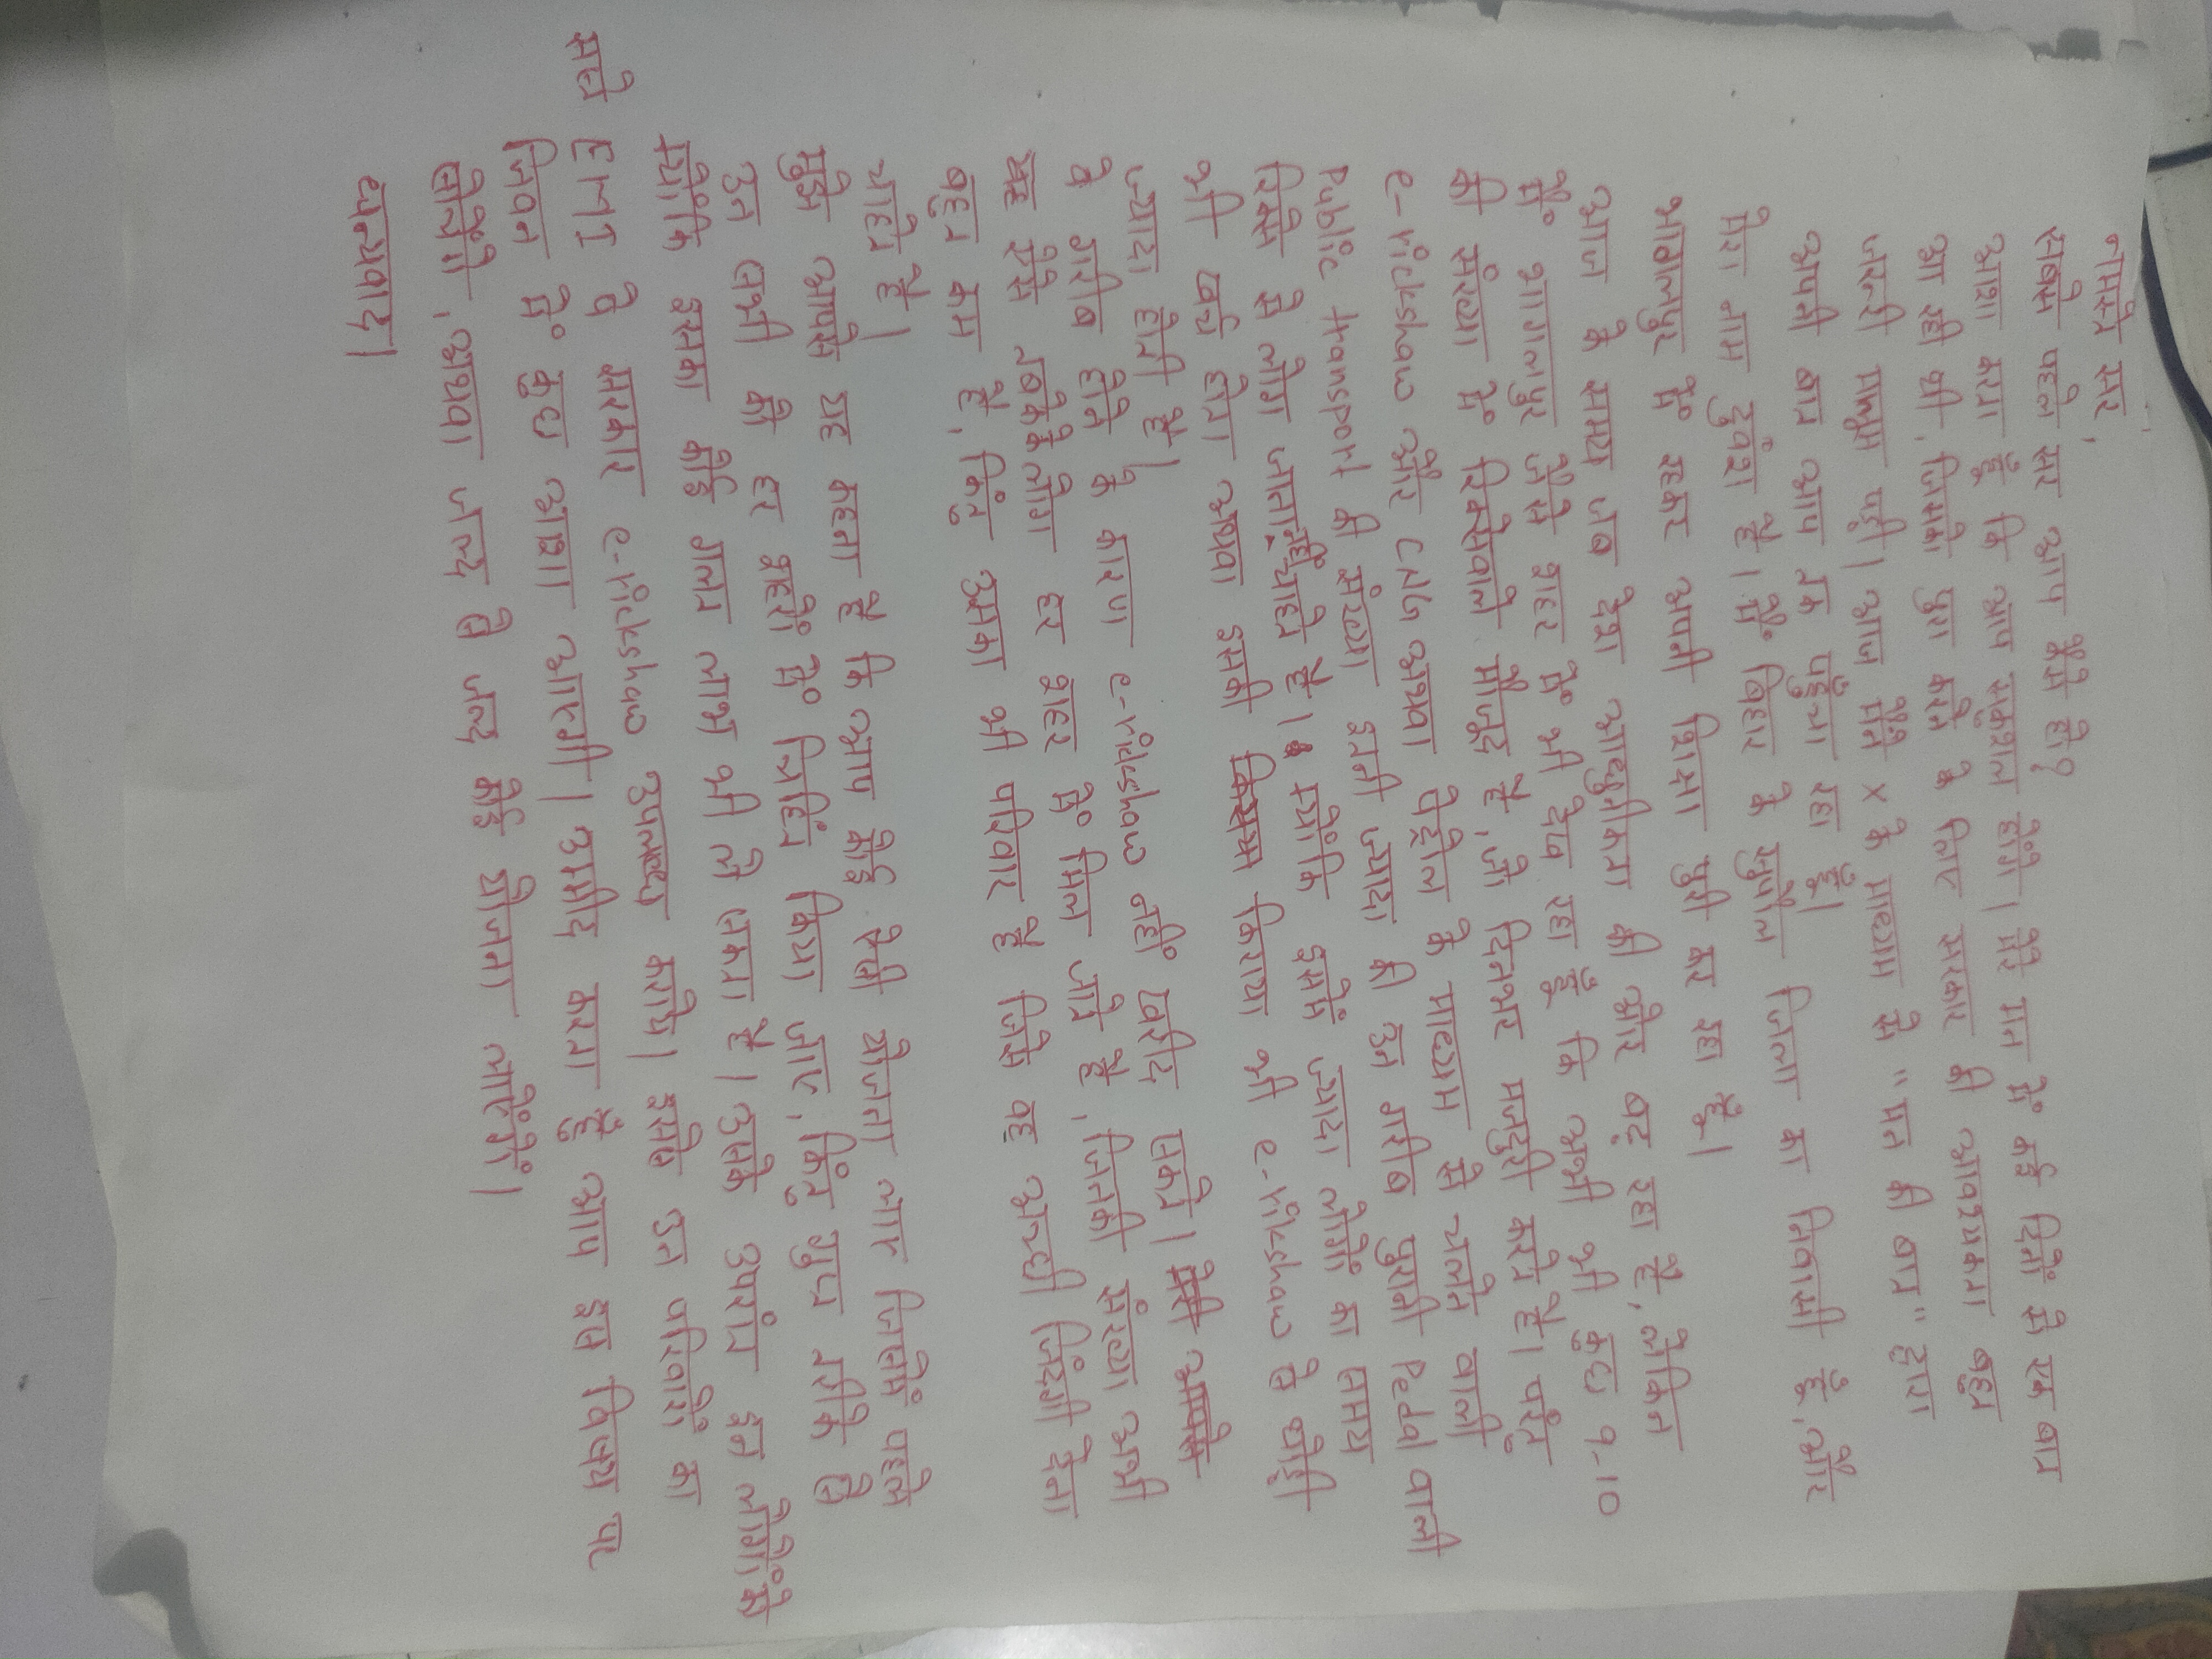 नमस्ते सर,
सबसे पहले सर आप कैसे हो?
आशा करता हूँ कि आप सकुशल होंगे। मेरे मन में कई दिनों से एक बात
आ रही थी, जिसके पुरा करने के लिए सरकार की आवश्यकता बहुत
जरूरी समझ पड़ी। आज मैंने X के माध्यम से "मन की बात" द्वारा
अपनी बात आप तक पहुँचा रहा हूँ।
मेरा नाम है। मैं बिहार के सुपौल जिला का निवासी हूँ, और
भागलपुर में रहकर अपनी शिक्षा पुरी कर रहा हूँ।
आज के समय जब देश आधुनीकता की ओर बढ़ रहा है, लेकिन
मैं भागलपुर जैसे शहर में भी देख रहा हूँ कि अभी भी कुछ 9-10
की संख्या में रिक्सेवाले मौजूद है, जो दिनभर मजदुरी करते हैं। परंतु
e-rickshaw और CNG अथवा पेट्रोल के माध्यम से चलने वाली
Public transport की संख्या इतनी ज्यादा की उन गरीब पुरानी Pedal वाली
रिक्से से लोग जाना नहीं चाहते हैं। क्योंकि इसमें ज्यादा लोगों का समय
भी खर्च होता अथवा इसकी किराया भी e-rickshaw से थोड़ी
ज्यादा होती है।
वे गरीब होने के कारण e-rickshaw नहीं खरीद सकते।
यह ऐसे तबके के लोग हर शहर में मिल जाते हैं, जिनकी संख्या अभी
बहुत कम है, किंतु उनका भी परिवार है जिसे वह अच्छी जिंदगी देना
चाहते हैं।
मुझे आपसे यह कहना है कि आप कोई ऐसी योजना लाए जिसमें पहले
उन सभी को हर शहरों में चिन्हित किया जाए, किंतु गुप्त तरीके से
क्योंकि इसका कोई गलत लाभ भी ले सकता है। उसके उपरांत इन लोगों को
सस्ते EMI पे सरकार e-rickshaw उपलब्ध कराये। इससे उन परिवारों का
जिवन में कुछ आशा आएगी। उम्मीद करता हूँ आप इस विषय पर
सोचेंगे, अथवा जल्द से जल्द कोई योजना लाएँगे।
धन्यवाद।